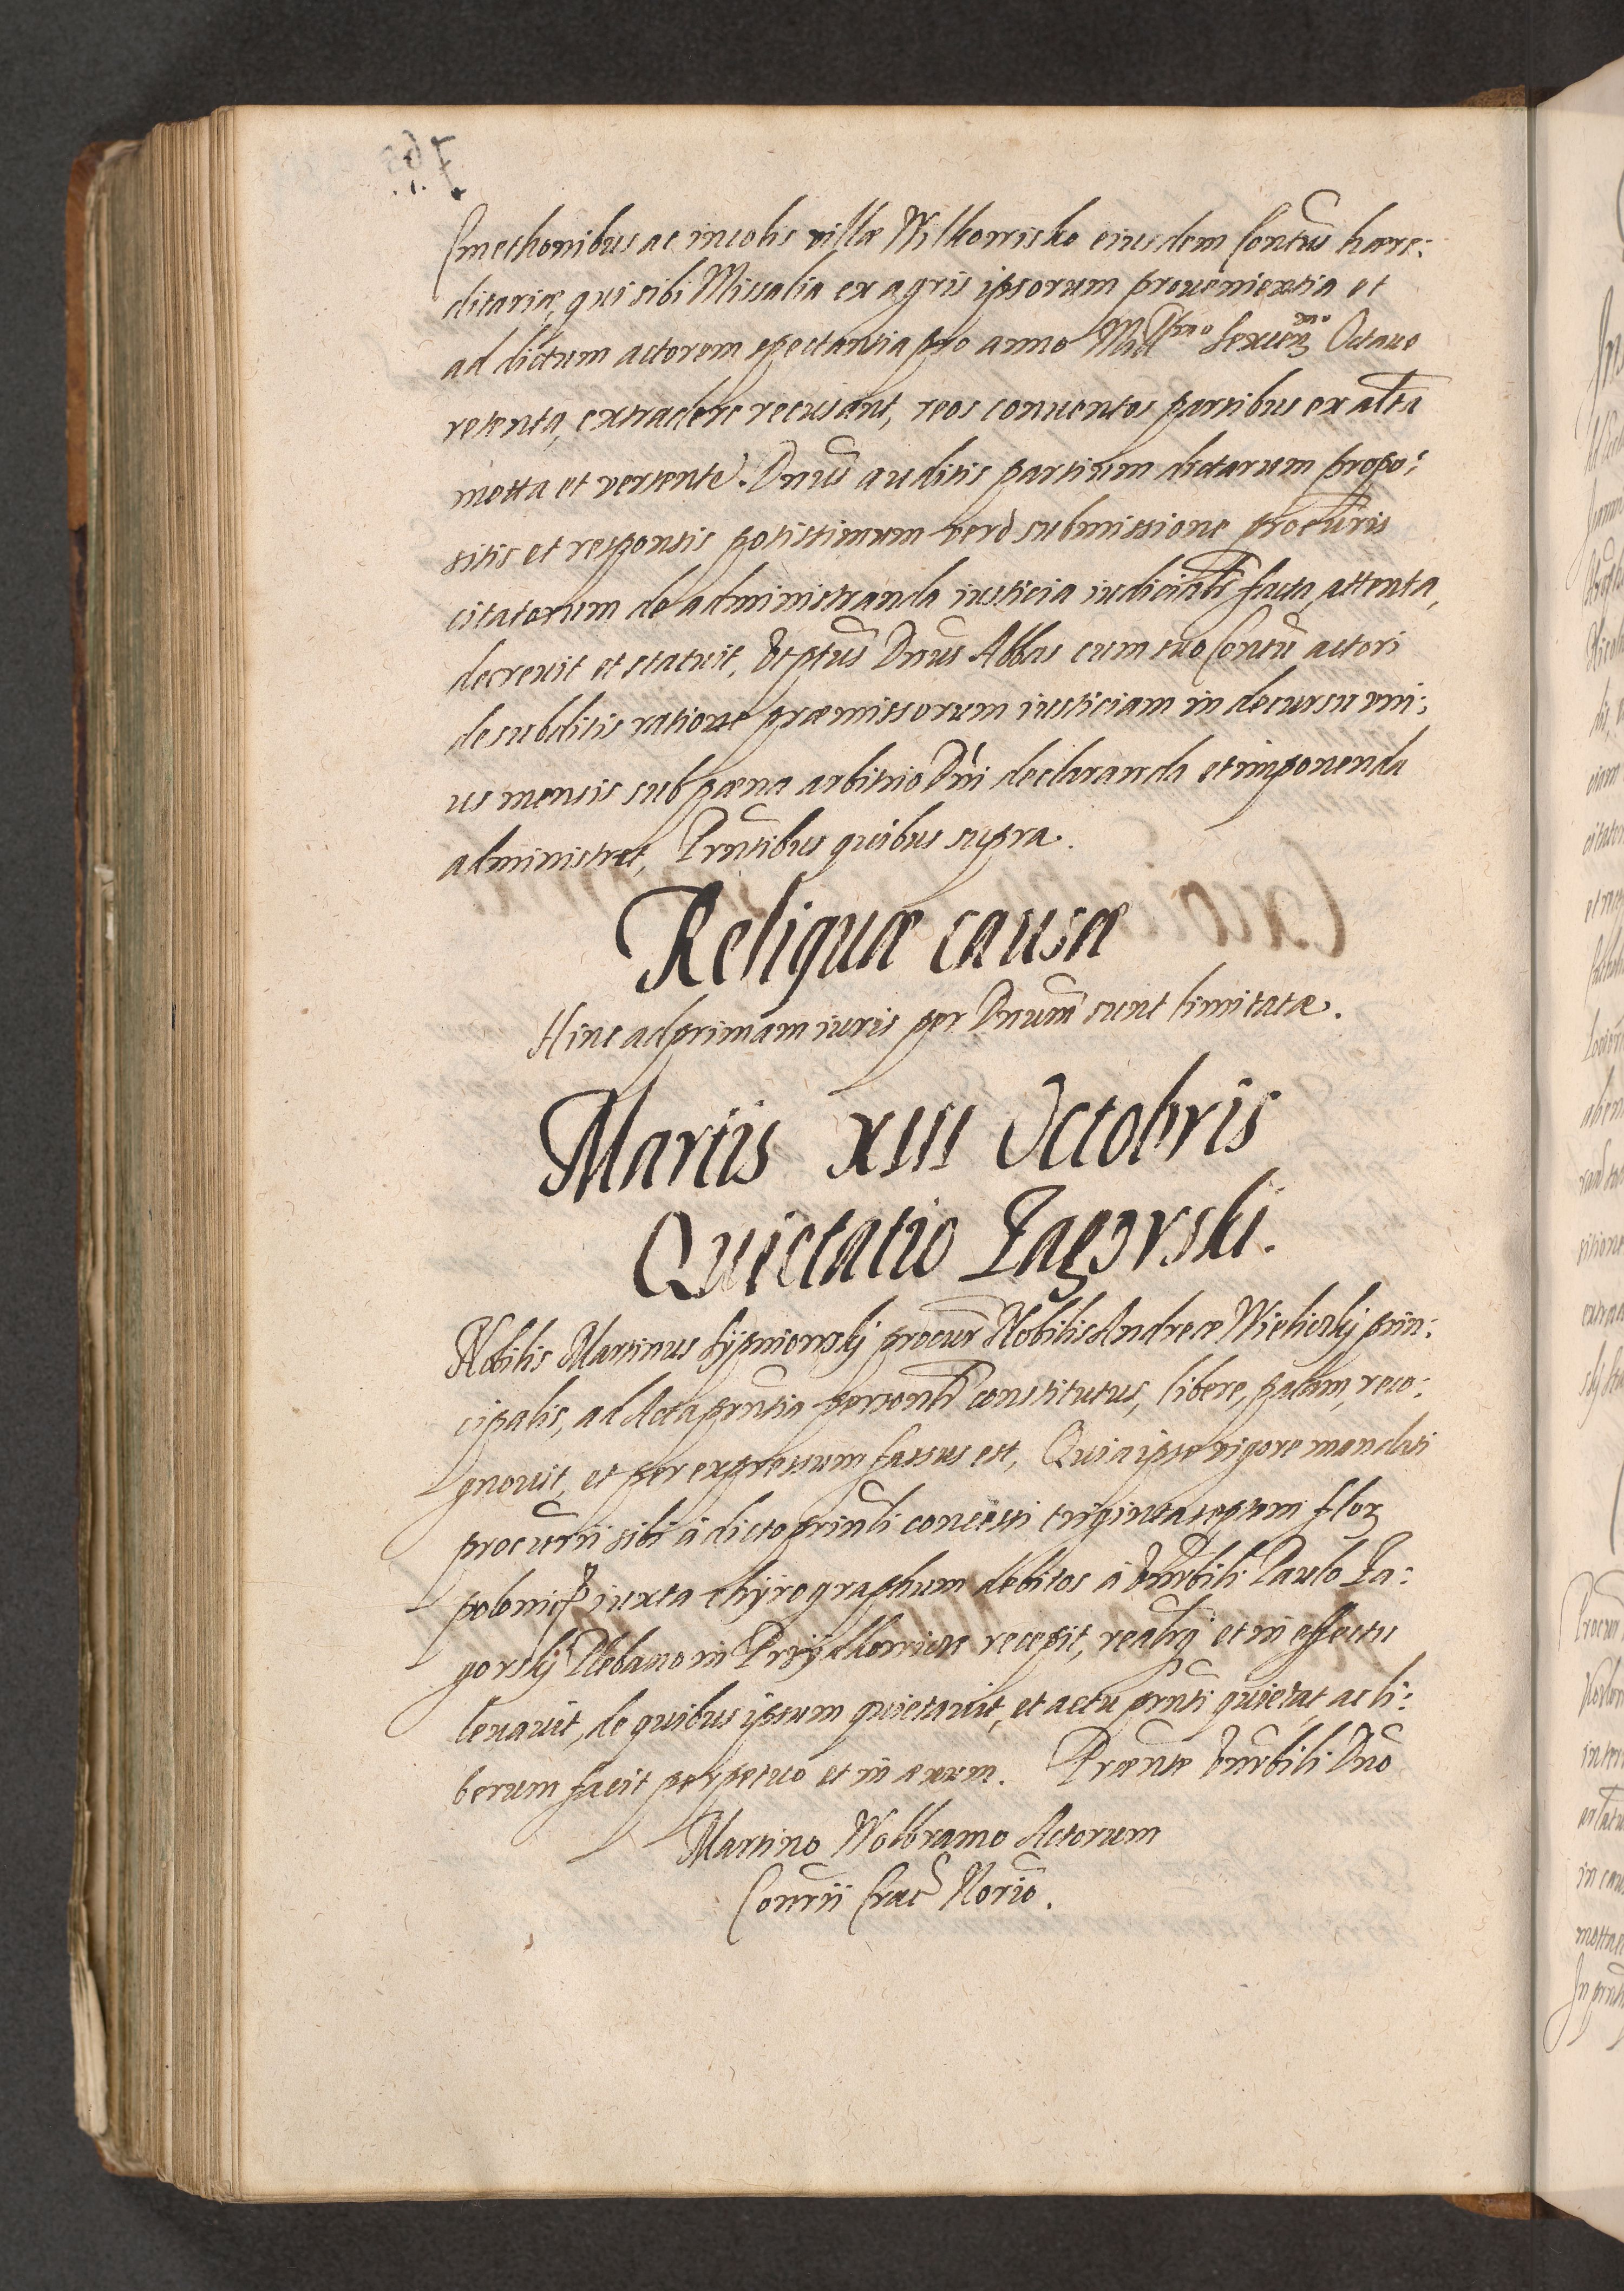 Cmethonibus ac incolis villæ Wilkowisko eiusdem Contus hære:
ditariæ, qui sibi Missalia ex agris ipsorum prouenientia et
ad dictum actorem spectantia pro anno Octauo
retenta, extradere recusant, reos conuentos partibus ex altra
motta et vertente. Dnus auditis partium dictarum propo:
sitis et responsis potissimum verò submissione procuris
citatorum de administranda iusticia iudicialr facta, attenta,
decreuit et statuit, Vt ptus Dnus Abbas cum suo Contu actori
de subditis ratione præmissorum iusticiam in decursu vni:
us mensis sub pæna arbitrio Dni declaranda et imponenda
administret, Prntibus quibus supra.
Reliquæ causæ
Hinc ad primam iuris per Dnum sunt limitatæ.
Martis XIII Octobris
Quietatio Zagorski.
Nobilis Martinus procur Nobilis Andreæ Wielicskij prin:
cipalis, ad Acta prntia personlr constitutus, libere, palam, reco:
gnouit, et per expressum fassus est, Quia ipse vigore mandati
procurii sibi à dicto prinli concessi triginta septem flor
polonic iuxta chÿrographum debitos à Vnrbili Paulo Za:
gorskij Plebano in recepit, realrq et in effectu
leuauit, de quibus ipsum quietauit, et actu prnti quietat, ac li:
berum facit perpetuo et in æuum. Præsnte Vnrbili Dno
Martino Wolbramo Actorum
Conrii Crac Norio.